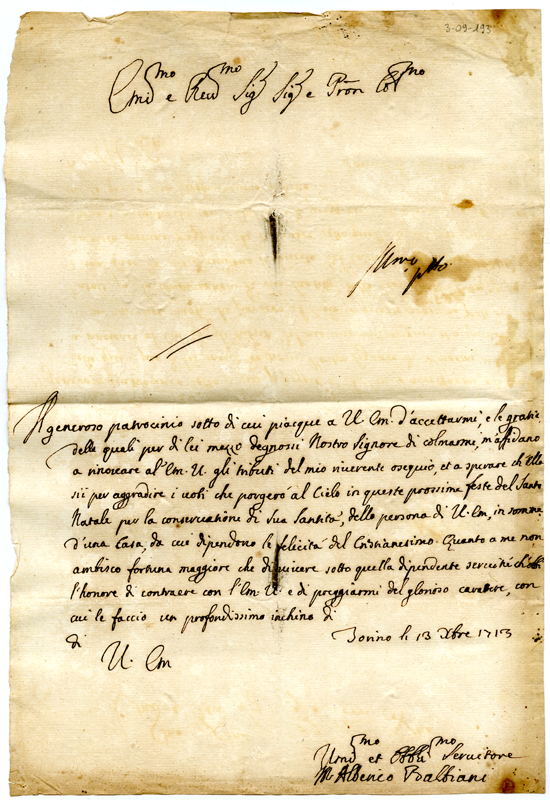 3-09-193
Em̃o e Reu.mo Sig.r Sig.r e Pron Col.mo
Il generoso patrocinio sotto di cui piacque a V. Em. d'accettarmi, e le gratie
delle quali per di lei mezzo degnossi Nostro Signore di colmarmi, m'affidano
a rinovare al Em. V. gli tributi del mio riverente ossequio, et a sperare ch'Ella
sii per aggradire i voti che porgerò al Cielo in queste prossime feste del Santo
Natale per la conservatione di Sua Santità, della persona di V. Em, in somma
d'una Casa, da cui dipendono le felicità del Cristianesimo. Quanto a me non
ambisco fortuna maggiore che di vivere sotto quella dipendente servitù ch'
l'honore di contraere con l'Em. V. e di preggiarmi del glorioso carattere, con
cui le faccio un profondissimo inchino di
Torino li 13 Xbre 1713
di
V. Em
Um.mo et Obbli.mo Servitore
Alberico Balbiani